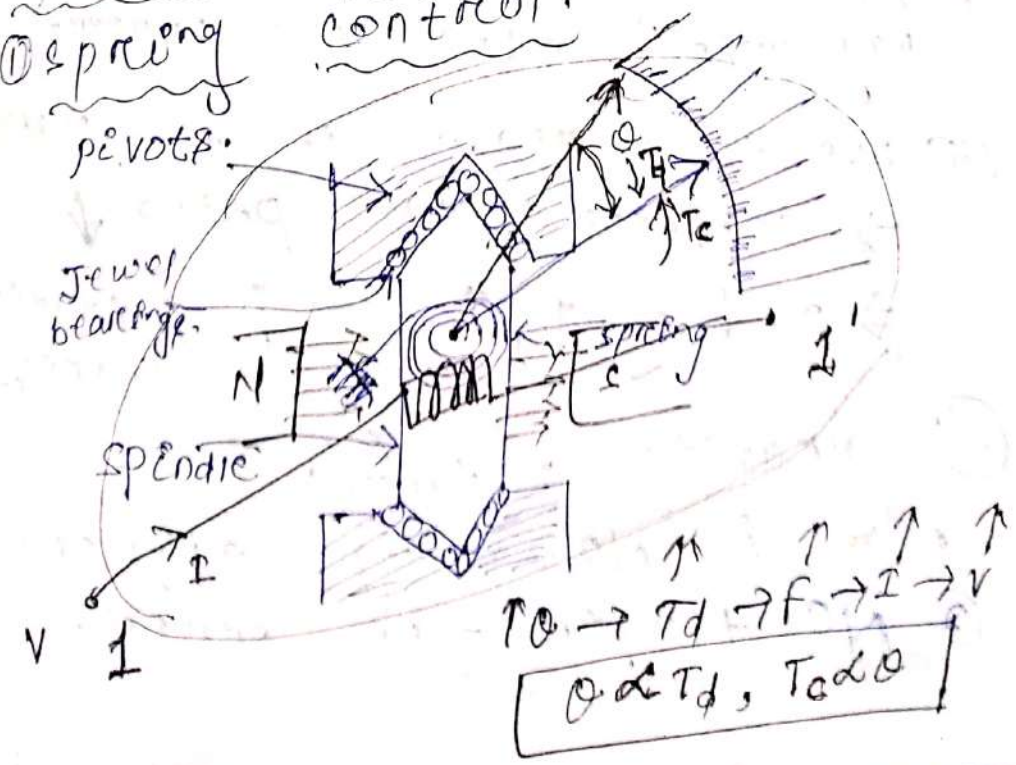 ① spring control.
pivots.
Jewel
bearings.
N
spring
s
1'
spindle
θ
Td
Tc
I
V 1
↑θ → Td → F → I → V
θ ∝ Td, Tc ∝ θ